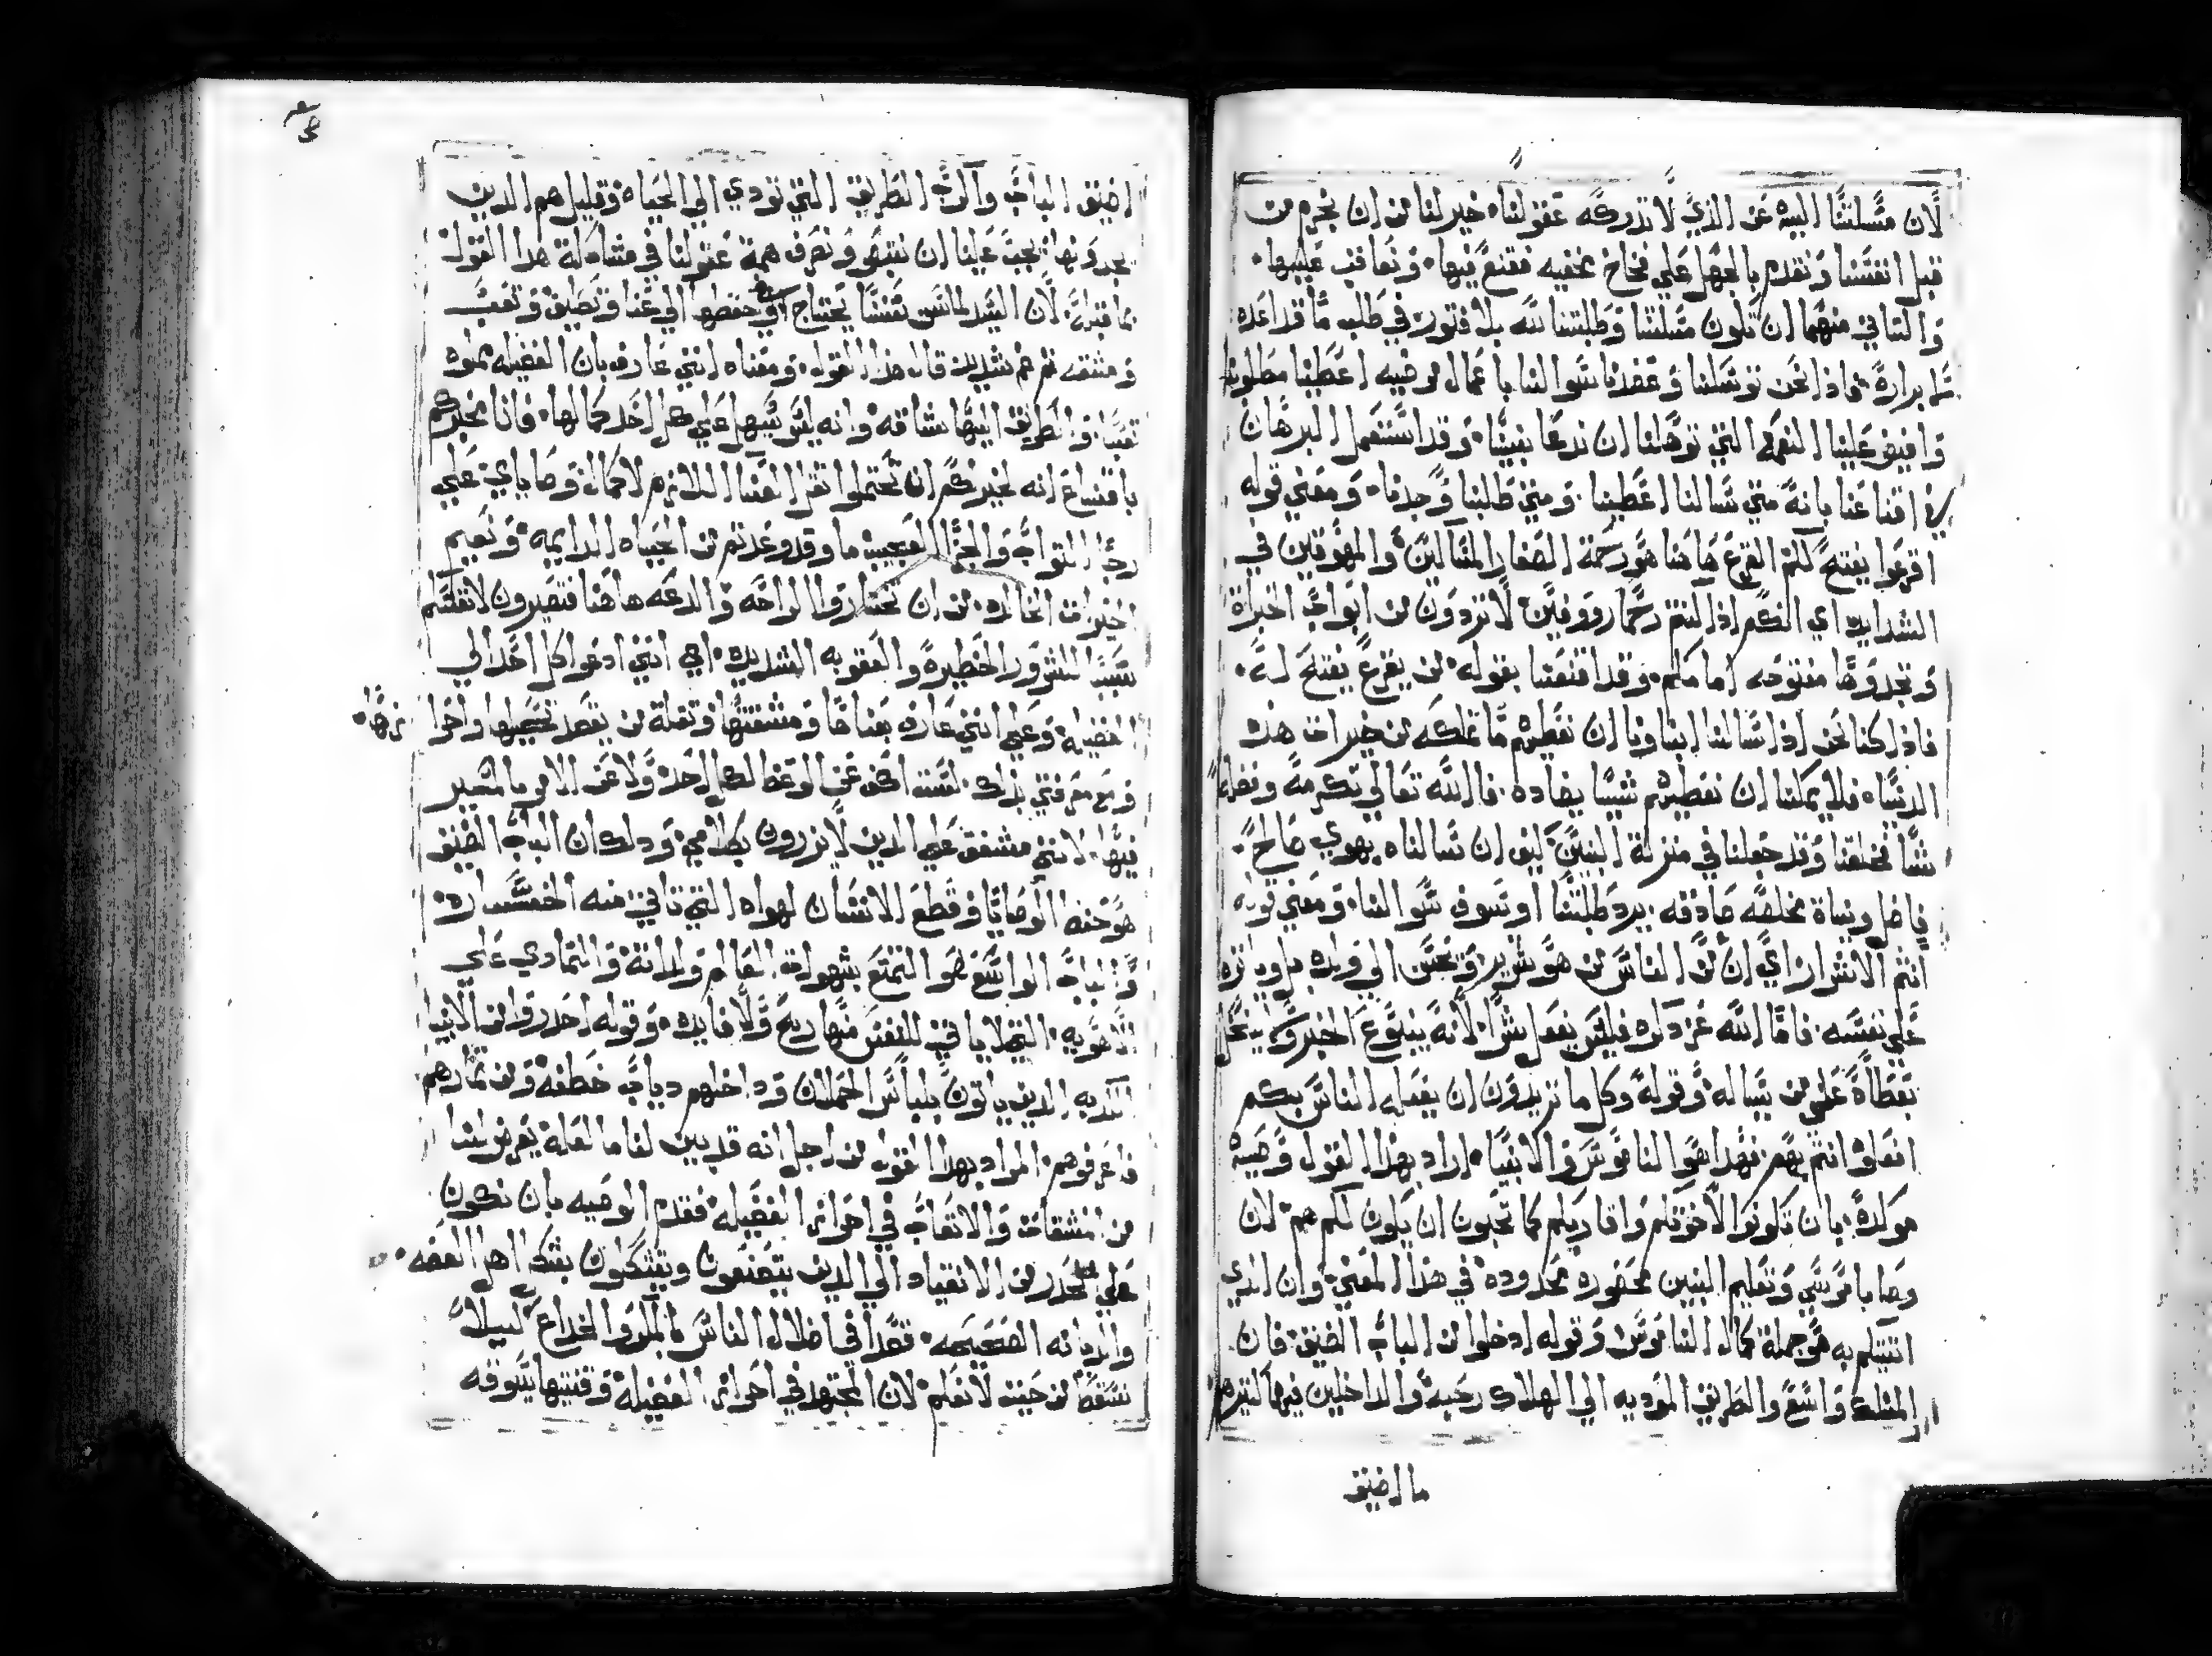 لان مسلتنا اليه عن الذي لا تدركه عقولنا خير لنا من ان نجرم من
قبل انفسنا ونقدم بالجهل علي فخاخ مخفيه فنقع فيها ونعاقب عليها
والثاني منهما ان تكون مسلتنا وطلبتنا لله بلا فتور في طلب ما قد اعده
للابراره فاذا نحن توسلنا وعضدنا سوالنا باعمال مرضيه اعطينا مطلوبنا
وافيض علينا النعمه التي توهلنا ان ندعا بنينا وقد استعمل البرهان
اقناعنا بانه متي سالنا اعطينا ومتي طلبنا وجدنا ومعني قوله
اقرعوا يفتح لكم القرع هاهنا هو رحمة الصغار المتالين والمهوقين في
الشدايد اي انكم اذا كنتم رحما رووفين لا تردون من ابواب الخيراة
وتجدوها مفتوحه امامكم وقد اقنعنا بقوله من يقرع يفتح له
فاذا كنا نحن اذا سالنا ابناونا ان نعطيهم مما نملكه من خيرات هذه
الدنيا فلا يمكنا ان نعطيهم شييا يضاده فالله تعالي تكرمة
شا فخلقنا وقد جعلنا في منزلة البنين ليق ان سالناه بهوي صالح
فاضل ونياة مخلصه صادقه يرد طلبتنا او يسوف سوالنا ومعني قوله
انتم الاشرار اي ان من الناس من هو شرير ويحسن الي ولده بل ويوثره
علي نفسه فاما الله عز ذكره فليس يفعل شرا لانه ينبوع الخير ولا يبخل
بعطاه علي من يساله وقوله وكل ما تريدون ان يفعله الناس بكم
افعلوه انتم بهم فهذا هو الناموس والانبيا اراد بهذا القول وصيه
موكده بان تكونوا لاخوتكم واقاربكم كما تحبون ان يكون لكم هم لان
وصايا موسي وتعليم النبيين محصوره محدوده في هذا المعني وان الذي
اتيتكم به هو جملة كمال الناموس وقوله ادخلوا من الباب الضيق فان
المسلك واسع والطريق الموديه الي الهلاك رحبه والداخلين فيها كتيرهم
ما اضيق
اضيق الباب واكرب الطريق التي تودي الي الحياه وقليل هم الدين
يجدونها يجب علينا ان ننتبه ونصرف همة عقولنا في مسالة هدا القول
بما قبله لان السيد لما سن سننا يحتاج في حفظها الي عنا وتضييق وتعب
ومشقه تم هم شديد قال هذا القول ومعناه انني عارف بان الفضيله مملوه
تعبا والطريق اليها شاقه وانه ليس يسهل علي كل احد كمالها فانا مخبركم
باقتناع انه لخير لكم ان تحتملوا تقل العنا اللازم لاكمال وصاياي علي
رجا التواب والجزا العجيب ما وقد وعدتم من الحياه الدايمه ونعيم
الخيرات الخالده من ان تختاروا الراحه والدعه هاهنا فتصيرون لانفسكم
سببا للشرور الخطيره والعقوبه الشديده اي انني ادعوا كل احد الي
الفضيله وعلي انني عارف بعناها ومشقتها وتقلة من يقصد تحصيلها واحرا
زها
ومع معرفتي بذلك لست اكف عن الوعظ لكل احد ولا عن الامر بالمسير
فيها لانني مشفق علي الدين لا يزدرون بكلامي وذلك ان الباب الضيق
هو حفظ الوصايا وقطع الانسان لهواه التي تاتي منه الخساره
والباب الواسع هو التمتع بشهوات العالم ولذاته والتمادي علي
الاهويه التي لا ياتي للنفس منها ربح ولا فايده وقوله احدروا من الانبيا
الكدبه الدين ياتون بلباس الحملان وداخلهم دياب خطفه ومن تمارهم
فاعرفوهم المراد بهدا القول من اجل انه قد بين لنا ما لعله يعرض لنا
من المشقات والاتعاب في احراز الفضيله فقدم الوصيه بان نكون
علي تحدر من الانقياد الي الدين يتصنعون ويتشكلون بشكل اهل العفه
والديانه الصحيحه قصدا في اضلال الناس بالمكر والخداع لييلا
نسقط من حيت لا نعلم لان المجتهد في احراز الفضيله وقنيتها يتسوقه